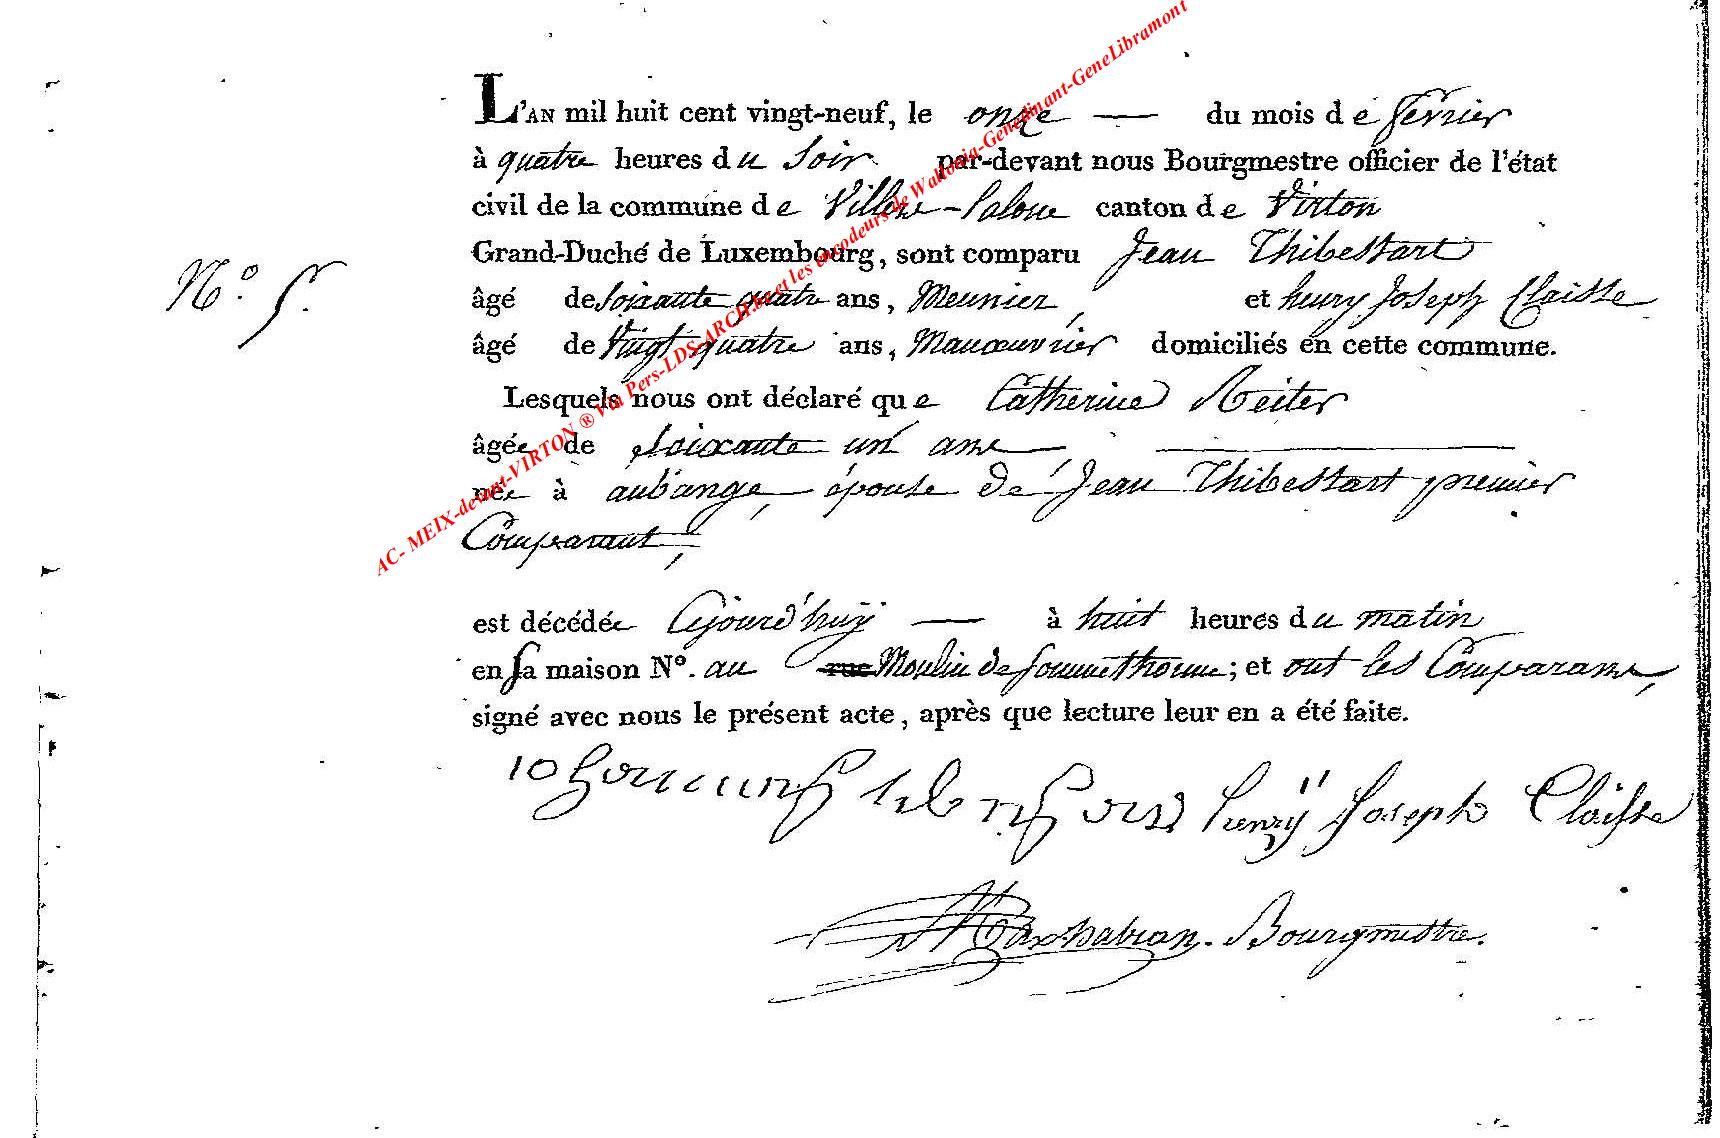 L'AN mil huit cent vingt-neuf, le onze — du mois de fevrier
à quatre heures du soir par-devant nous Bourgmestre officier de l'état
civil de la commune de Villers-Laloue canton de Virton
Grand-Duché de Luxembourg, sont comparu Jean Thibestart
N.o 5.
âgé de soixante quatre ans, Meunier, et henry Joseph Claisse
âgé de Vingt quatre ans, Manœuvrier domiciliés en cette commune.
Lesquels nous ont déclaré que Catherine Reiter
âgée de soixante un ans,
née à aubange, épouse de Jean Thibestart premier
Comparant,
est décédée Cejourd'huy — à huit heures du matin
en sa maison No. au rue Moulin de Sommethonne; et ont les Comparans,
signé avec nous le présent acte, après que lecture leur en a été faite.
henrÿ Joseph Claisse
Bourgmestre.
AC- MEIX-devant-VIRTON ® Via Pers-LDS-ARCH.be et les encodeurs de Wallonia-Genedinant-GeneLibramont